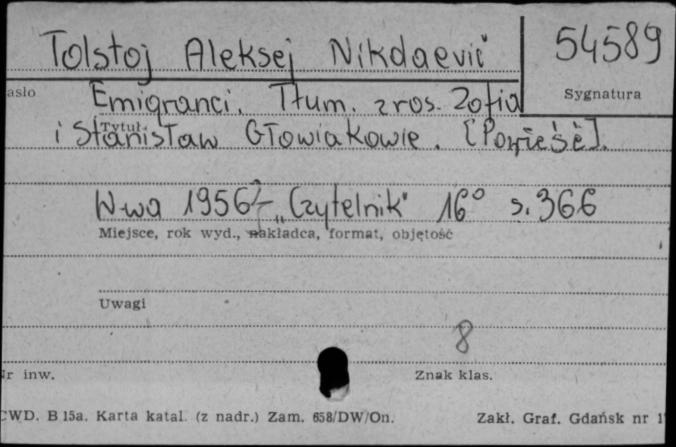 Tolstoj Aleksej Nikolaevič 54589
asło Sygnatura
Emigranci. Tłum. z ros. Zofia
Tytuł
i Stanisław Głowiakowie. [Powieść].
W-wa 1956 „Czytelnik" 16° s. 366
Miejsce, rok wyd., nakładca, format, objętość
Uwagi
8
r inw. Znak klas.
CWD. B 15a. Karta katal. (z nadr.) Zam. 658/DW/On. Zakł. Graf. Gdańsk nr 1